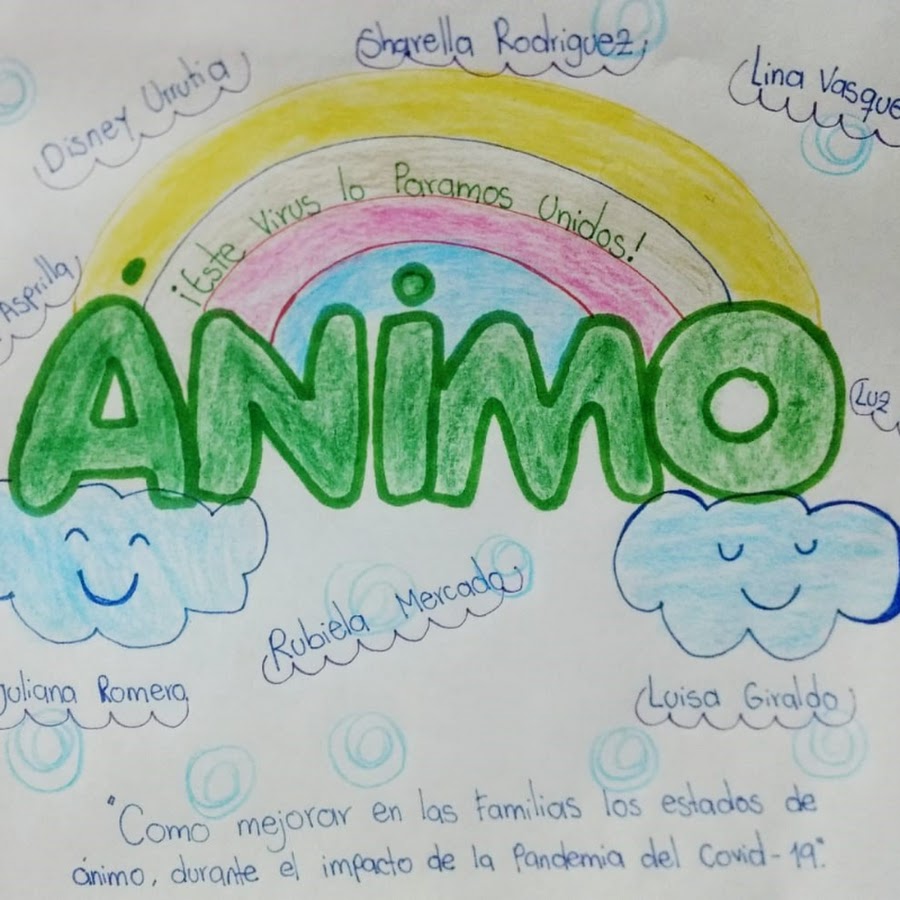 Sharella Rodriguez
Disney Urrutia
Lina Vasque
¡Este Virus lo Paramos Unidos!
Asprilla
ÁNiMO
Luz
Rubiela Mercado
Juliana Romero
Luisa Giraldo
"Como mejorar en las Familias los estados de
ánimo, durante el impacto de la Pandemia del Covid-19."